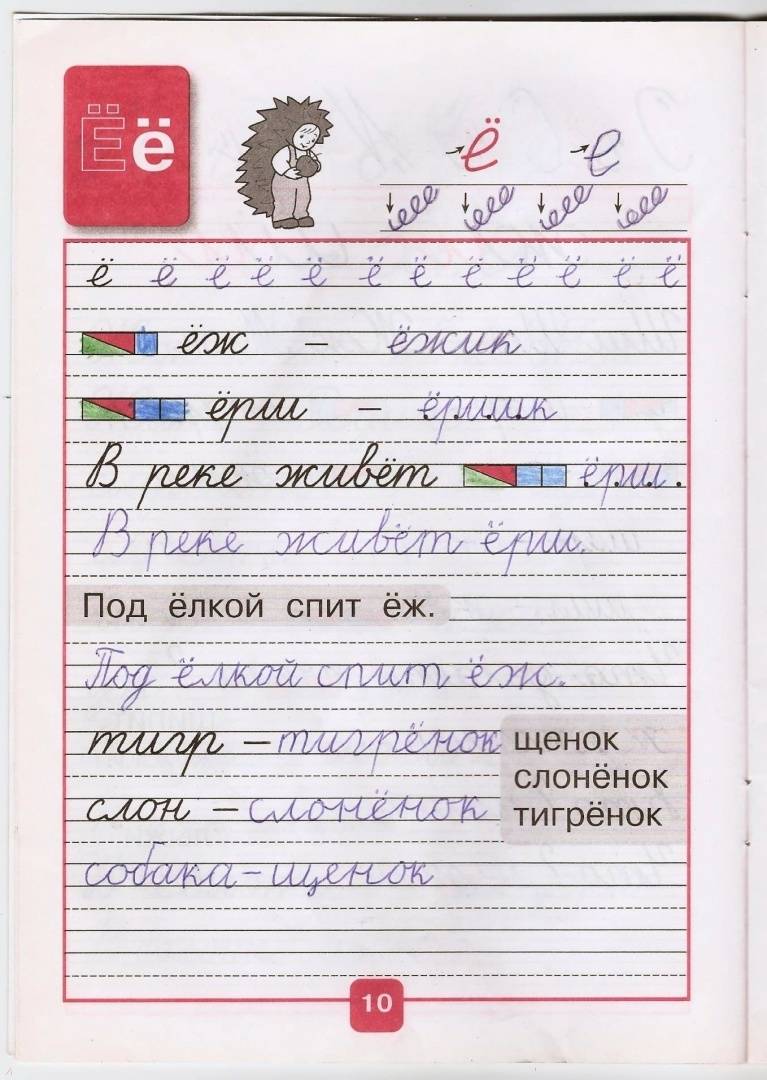 Ёё
ё е
ееее ееее ееее ееее
ё ё ё ё ё ё ё ё ё ё ё ё
ёж – ёжик
ёрш – ёршик
В реке живёт ёрш.
В реке живёт ёрш.
Под ёлкой спит ёж.
Под ёлкой спит ёж.
тигр – тигрёнок
слон – слонёнок
собака – щенок
щенок
слонёнок
тигрёнок
10